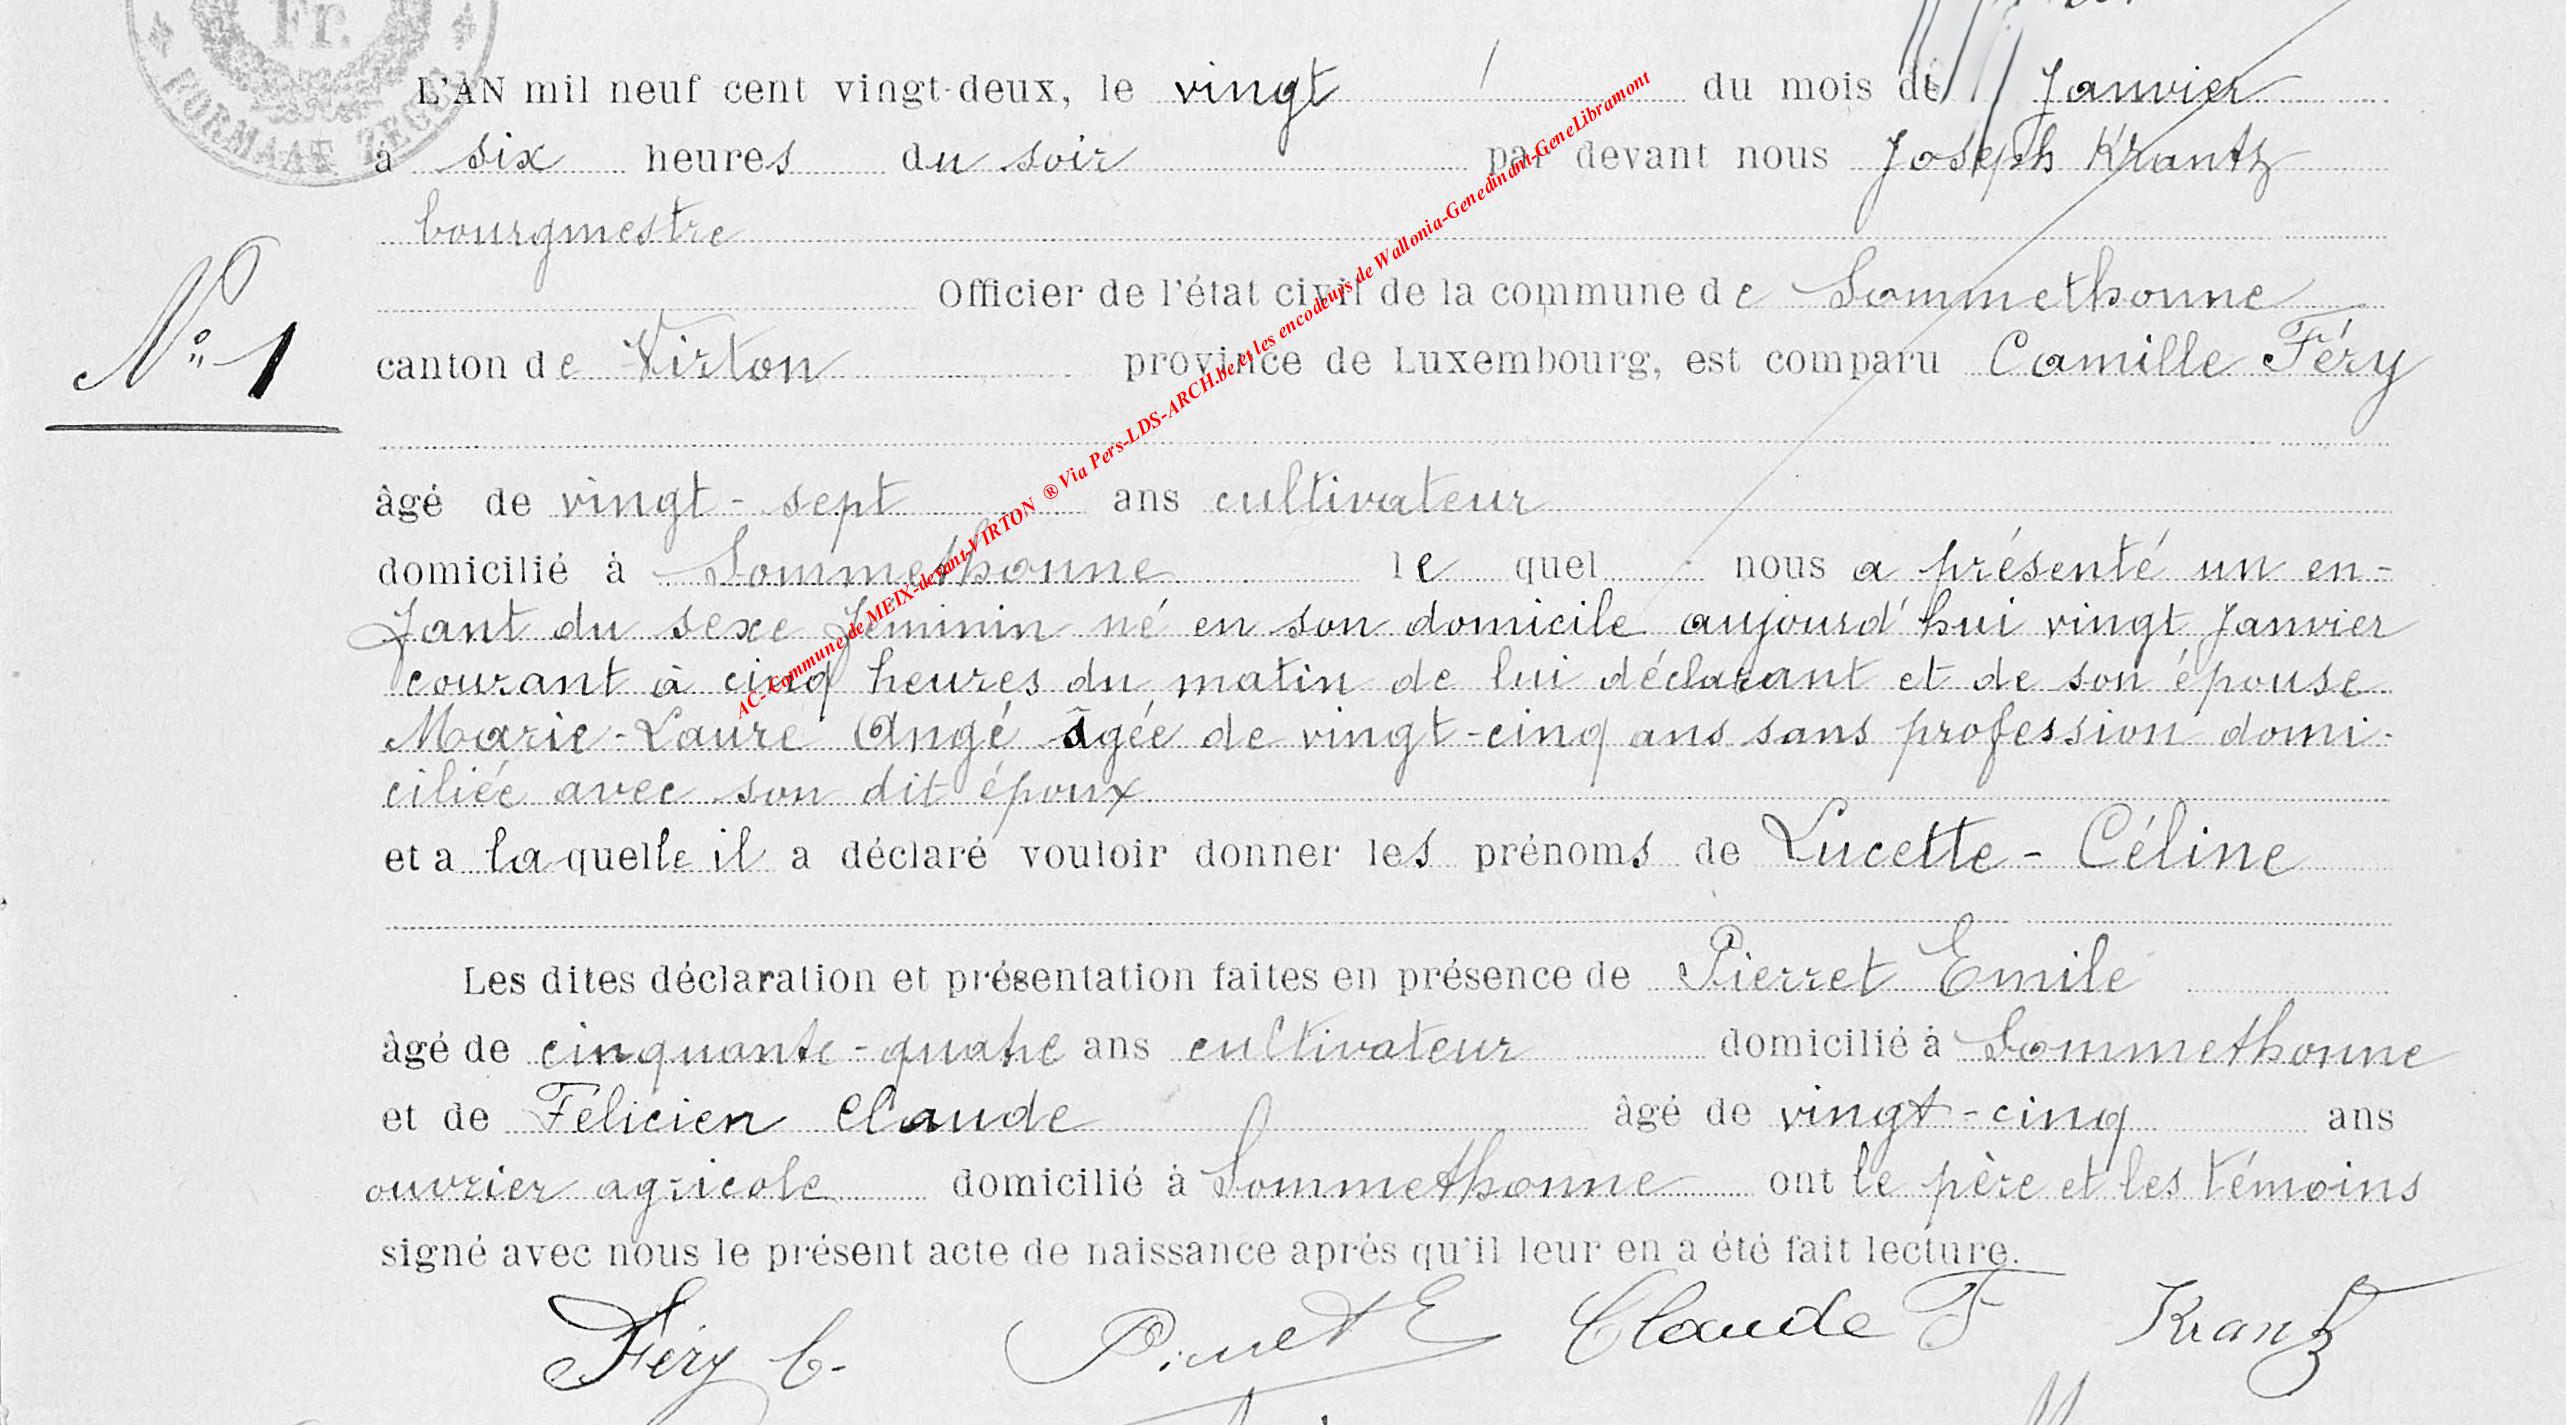 Fr.
FORMAAT ZEGEL
L'AN mil neuf cent vingt-deux, le vingt du mois de Janvier
à six heures du soir par devant nous Joseph Krantz
bourgmestre
Officier de l'état civil de la commune de Sommethonne
N° 1
canton de Virton province de Luxembourg, est comparu Camille Féry
âgé de vingt-sept ans cultivateur
domicilié à Sommethonne le quel nous a présenté un en-
fant du sexe féminin né en son domicile aujourd'hui vingt Janvier
courant à cinq heures du matin de lui déclarant et de son épouse
Marie-Laure Angé âgée de vingt-cinq ans sans profession domi-
ciliée avec son dit époux
et a laquelle il a déclaré vouloir donner les prénoms de Lucette-Céline
Les dites déclaration et présentation faites en présence de Pierret Emile
âgé de cinquante-quatre ans cultivateur domicilié à Sommethonne
et de Félicien Claude âgé de vingt-cinq ans
ouvrier agricole domicilié à Sommethonne ont le père et les témoins
signé avec nous le présent acte de naissance après qu'il leur en a été fait lecture.
Féry C. Pierret E Claude F Krantz
AC- Commune de MEIX-devant-VIRTON ® Via Pers-LDS-ARCH.be et les encodeurs de Wallonia-Genedinant-GeneLibramont